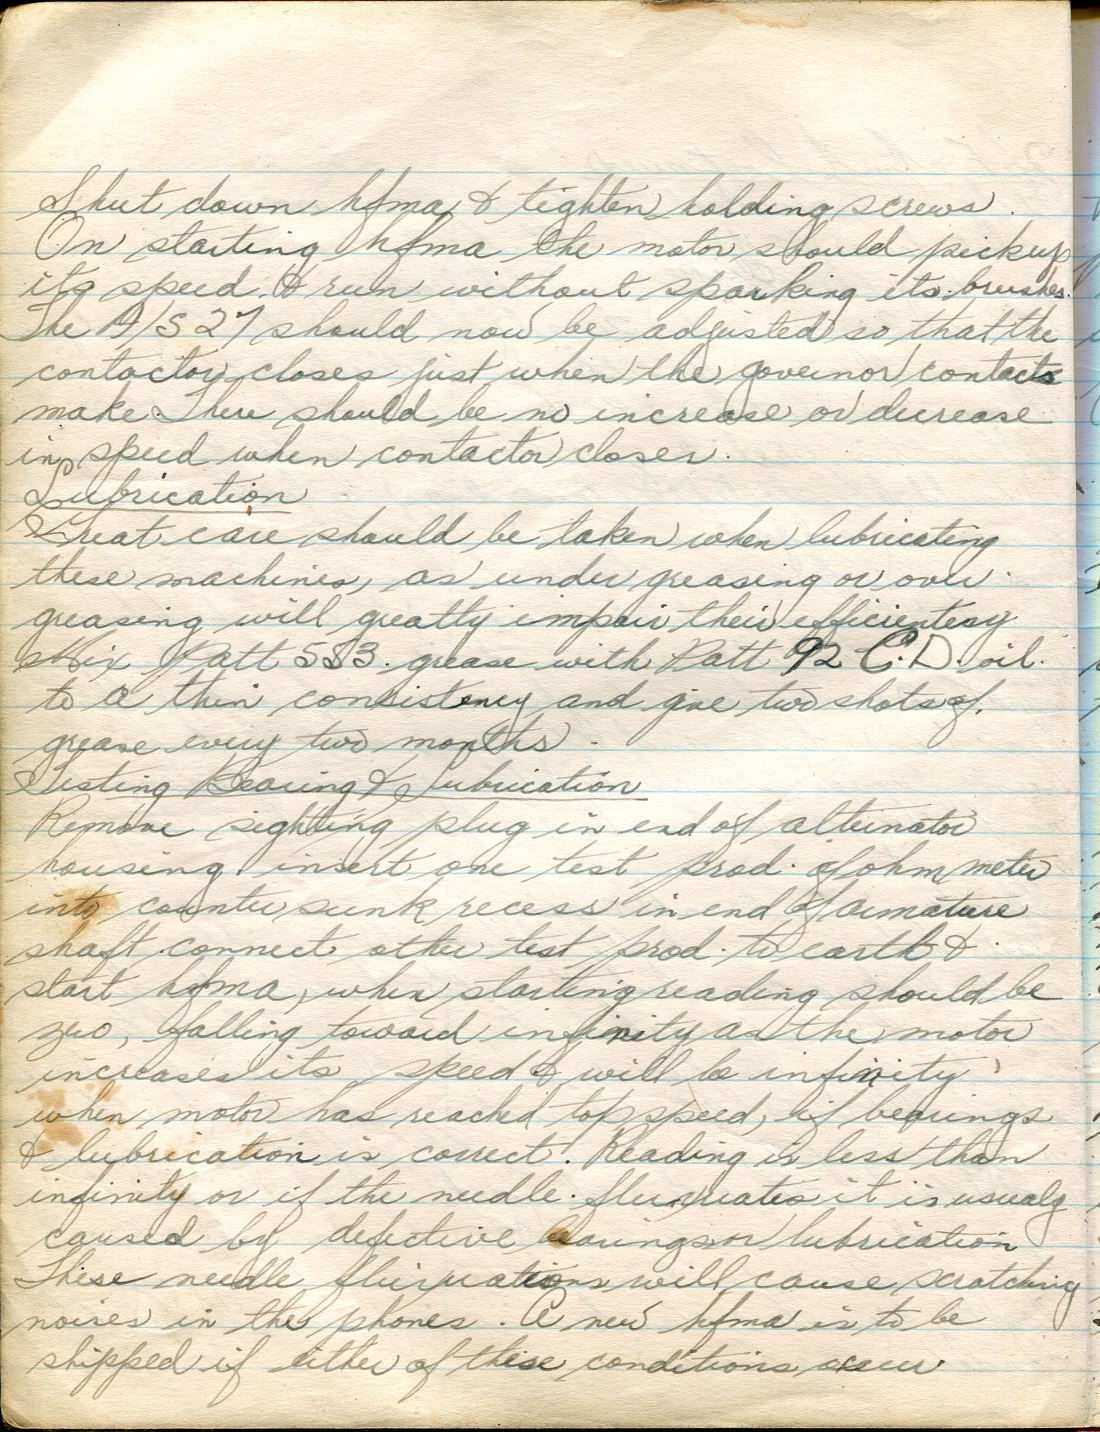 Shut down hfma & tighten holding screws.
On starting hfma the motor should pickup
its speed & run without sparking its brushes.
The A/S 27 should now be adjusted so that the
contactor closes just when the governor contacts
make. There should be no increase or decrease
in speed when contactor closes.
Lubrication
Great care should be taken when lubricating
these machines, as under greasing or over
greasing will greatly impair their efficientesy
Mix Patt 553. grease with Patt 92 C.D. oil.
to a thin consistency and give two shots of.
grease every two months.
Testing Bearing & Lubrication
Remove sighting plug in end of alternator
housing insert one test prod. of ohm meter
into counter sunk recess in end of armature
shaft connect other test prod. to earth &
start hfma, when starting reading should be
zero, falling toward infinity as the motor
increases its speed & will be infinity
when motor has reached top speed, if bearings
& lubrication is correct. Reading is less than
infinity or if the needle. it is usualy
caused by defective bearings or lubrication
These needle will cause scratching
noises in the phones. A new hfma is to be
shipped if either of these conditions occur